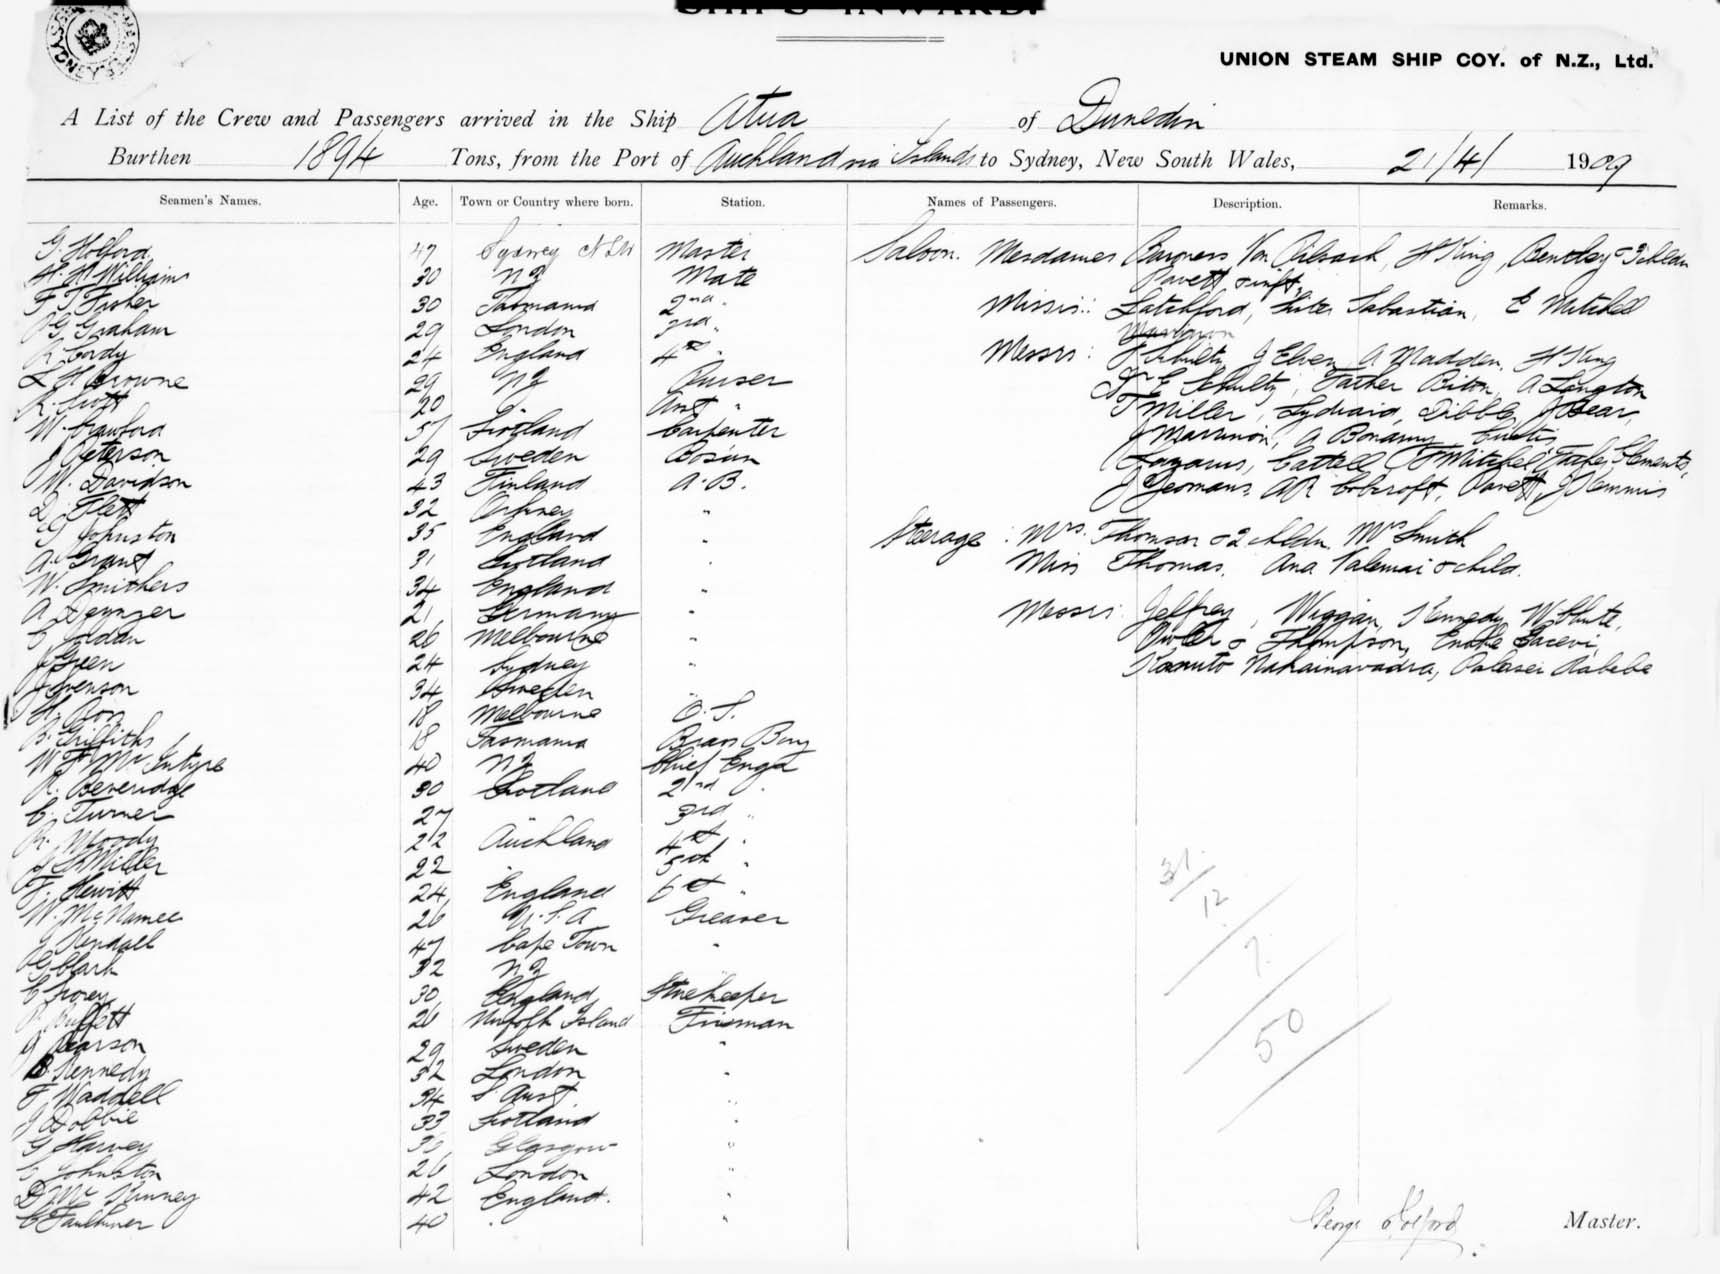 SHIPS INWARD.
UNION STEAM SHIP COY. of N.Z., Ltd.
A List of the Crew and Passengers arrived in the Ship Atua of Dunedin
Burthen 1894 Tons, from the Port of Auckland via Islands to Sydney, New South Wales, 21/4/ 1909
Seamen's Names. Age. Town or Country where born. Station. Names of Passengers. Description. Remarks.
G. Holford 47 Sydney NSW Master
H. H. Williams 30 NZ Mate
F T Fisher 30 Tasmania 2nd "
G Graham 29 London 3rd "
R Cordy 24 England 4th "
L H Browne 29 NZ Purser
R. Scott 20 " Asst "
W. Crawford 51 Scotland Carpenter
J Peterson 29 Sweden Bosun
W. Davidson 43 Finland A.B.
D. Flett 32 Orkney "
G Johnston 35 England "
A. Grant 31 Scotland "
W. Smithers 34 England "
A. 21 Germany "
C Jordan 26 Melbourne "
J Green 24 Sydney "
J Svenson 34 Sweden "
H. 18 Melbourne O.S.
B. Griffiths 18 Tasmania Brass Boy
W F McIntyre 40 NZ Chief Engr
R. Beveridge 30 Scotland 2nd "
C. Turner 27 " 3rd "
R. Moody 22 Auckland 4th "
Miller 22 " 5th "
F. Hewitt 24 England 6th "
W. McNamee 26 U.S.A Greaser
J Kendall 47 Cape Town "
G Clark 32 NZ "
C 30 England Storekeeper
Buffett 26 Norfolk Island Fireman
J Pearson 29 Sweden "
Kennedy 32 London "
F Waddell 34 S. Aust. "
J Dobbie 33 Scotland "
G Harvey 30 Glasgow "
C Johnston 26 London "
D McKinney 42 England. "
C Faulkner 40 " "
Saloon. Mesdames Baroness Von H King, Bentley & 3 chldn
Pavett & inft,
Misses: Latchford, Sister Sabastian, E Mitchell
Messrs: Schultz, J Elven, A Madden, H King
E Schultz, Father Biton, A Langton
T Miller, Lydiard, Dibble, J Bear,
J A Bonamy, Curtis
Lazarus, Cattell, Mitchel, Father Clements,
J Yeomans, AR Cobcroft, Pavett, J Kemmis
Steerage: Mrs. Thomson & 2 chldn. Mrs Smith
Miss Thomas. Ana Valemai & child.
Messrs: Jeffrey, Wiggan, Kennedy, W Chute,
& Thompson,
Nakainavadra,
31
12
7
50
George Holford Master.